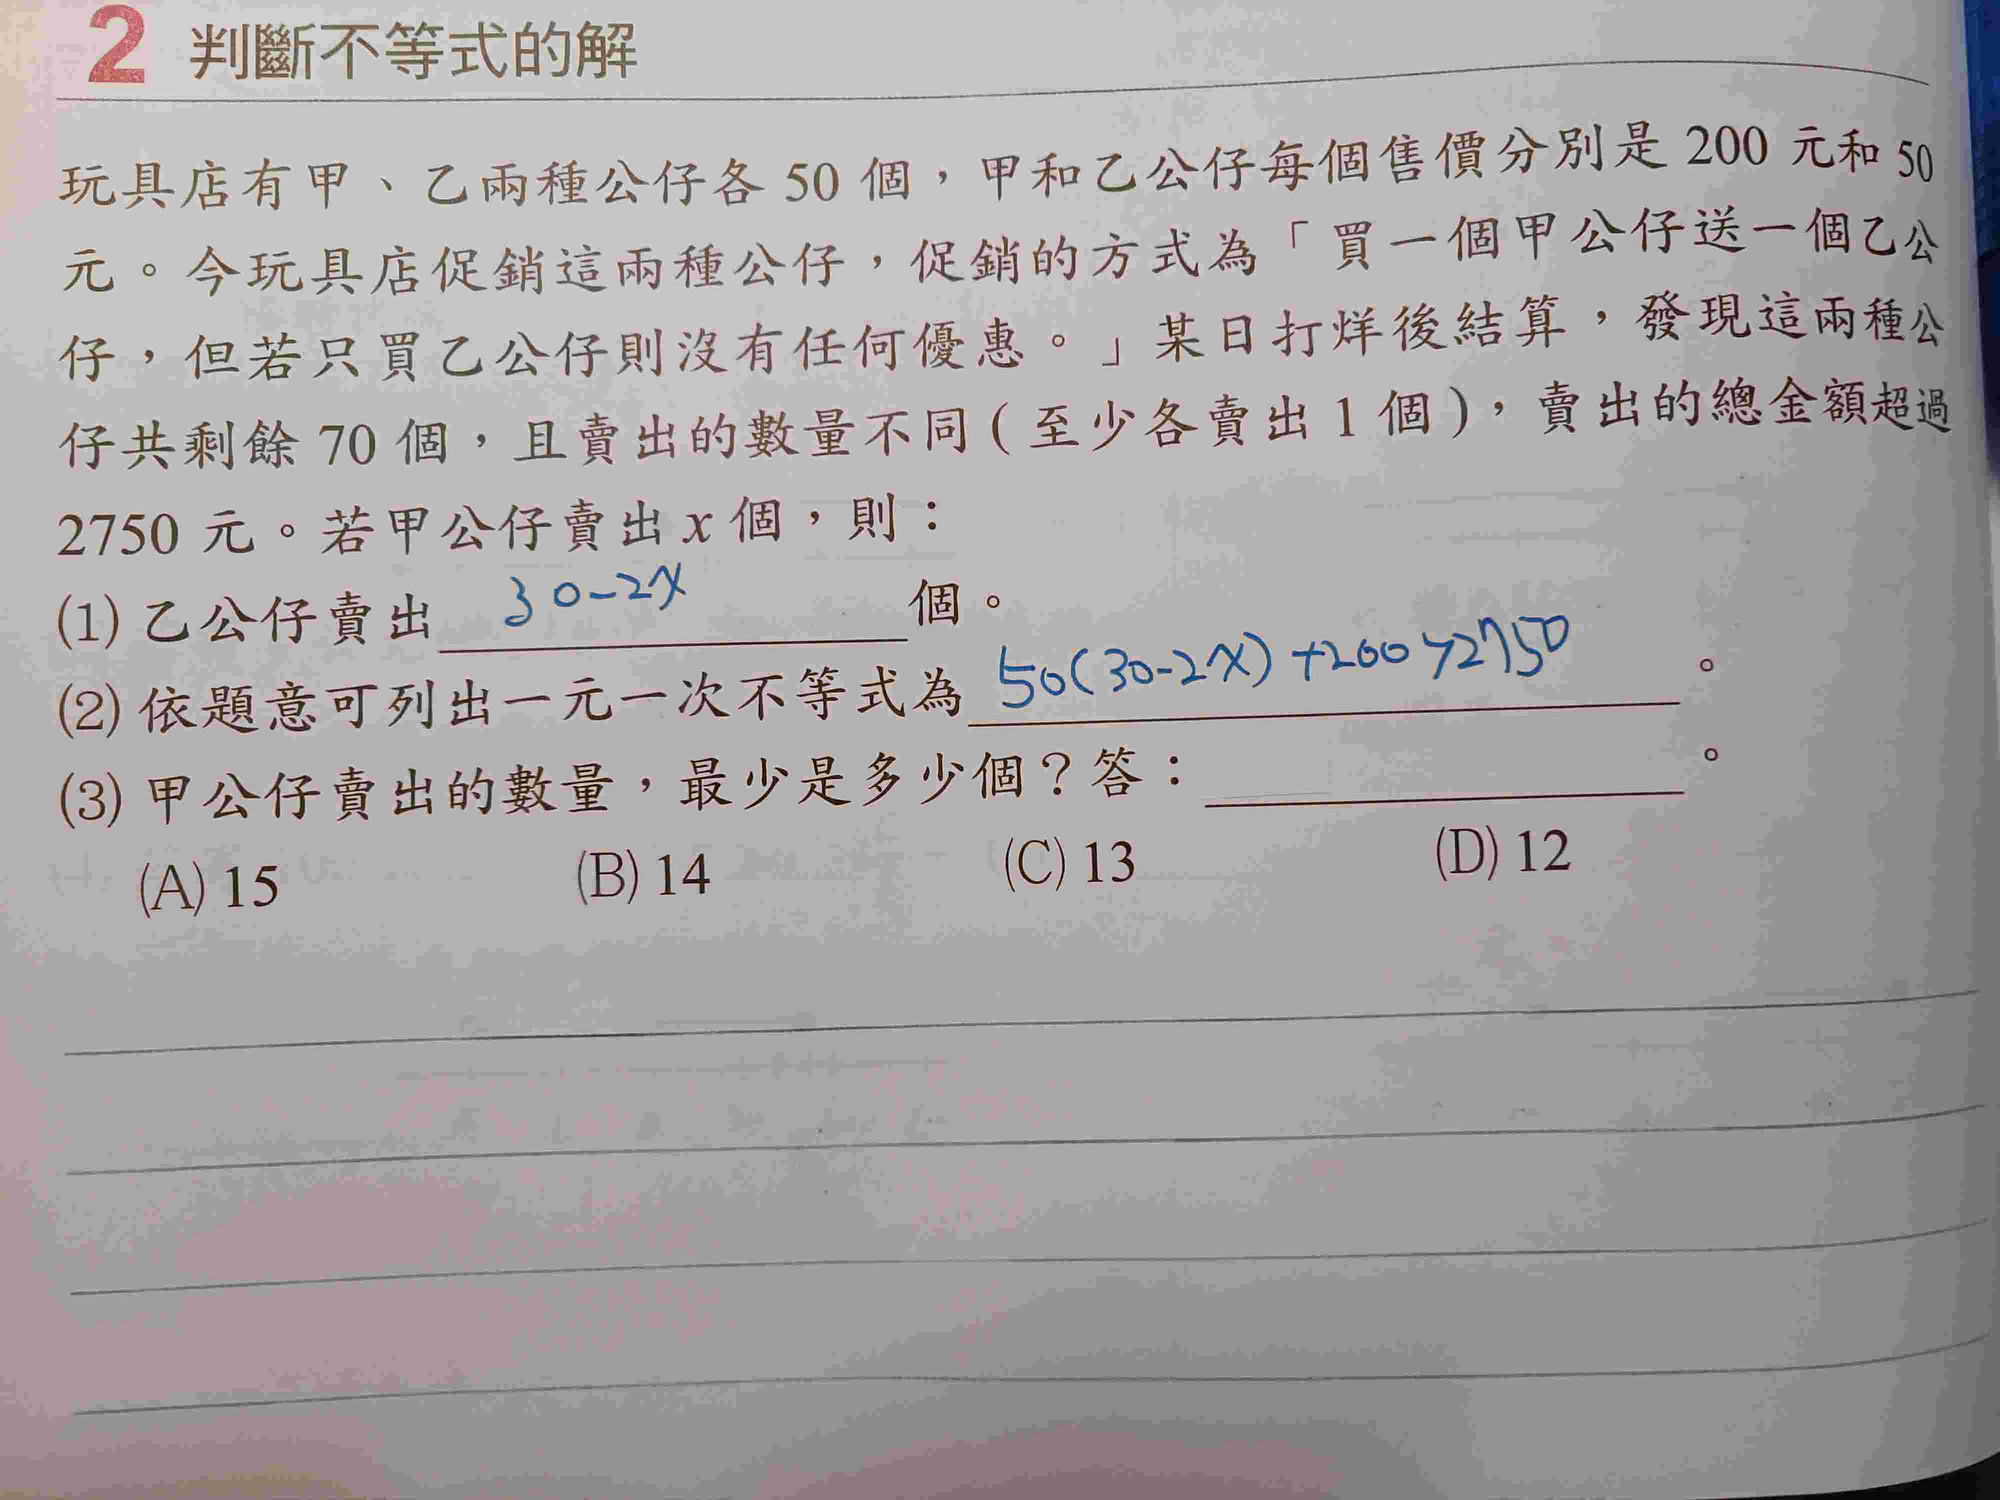 2 判斷不等式的解
玩具店有甲、乙兩種公仔各 50 個，甲和乙公仔每個售價分別是 200 元和 50
元。今玩具店促銷這兩種公仔，促銷的方式為「買一個甲公仔送一個乙公
仔，但若只買乙公仔則沒有任何優惠。」某日打烊後結算，發現這兩種公
仔共剩餘 70 個，且賣出的數量不同(至少各賣出 1 個)，賣出的總金額超過
2750 元。若甲公仔賣出 x 個，則：
(1) 乙公仔賣出 30-2x 個。
(2) 依題意可列出一元一次不等式為 50(30-2x)+200>2750 。
(3) 甲公仔賣出的數量，最少是多少個？答： 。
(A) 15 (B) 14 (C) 13 (D) 12